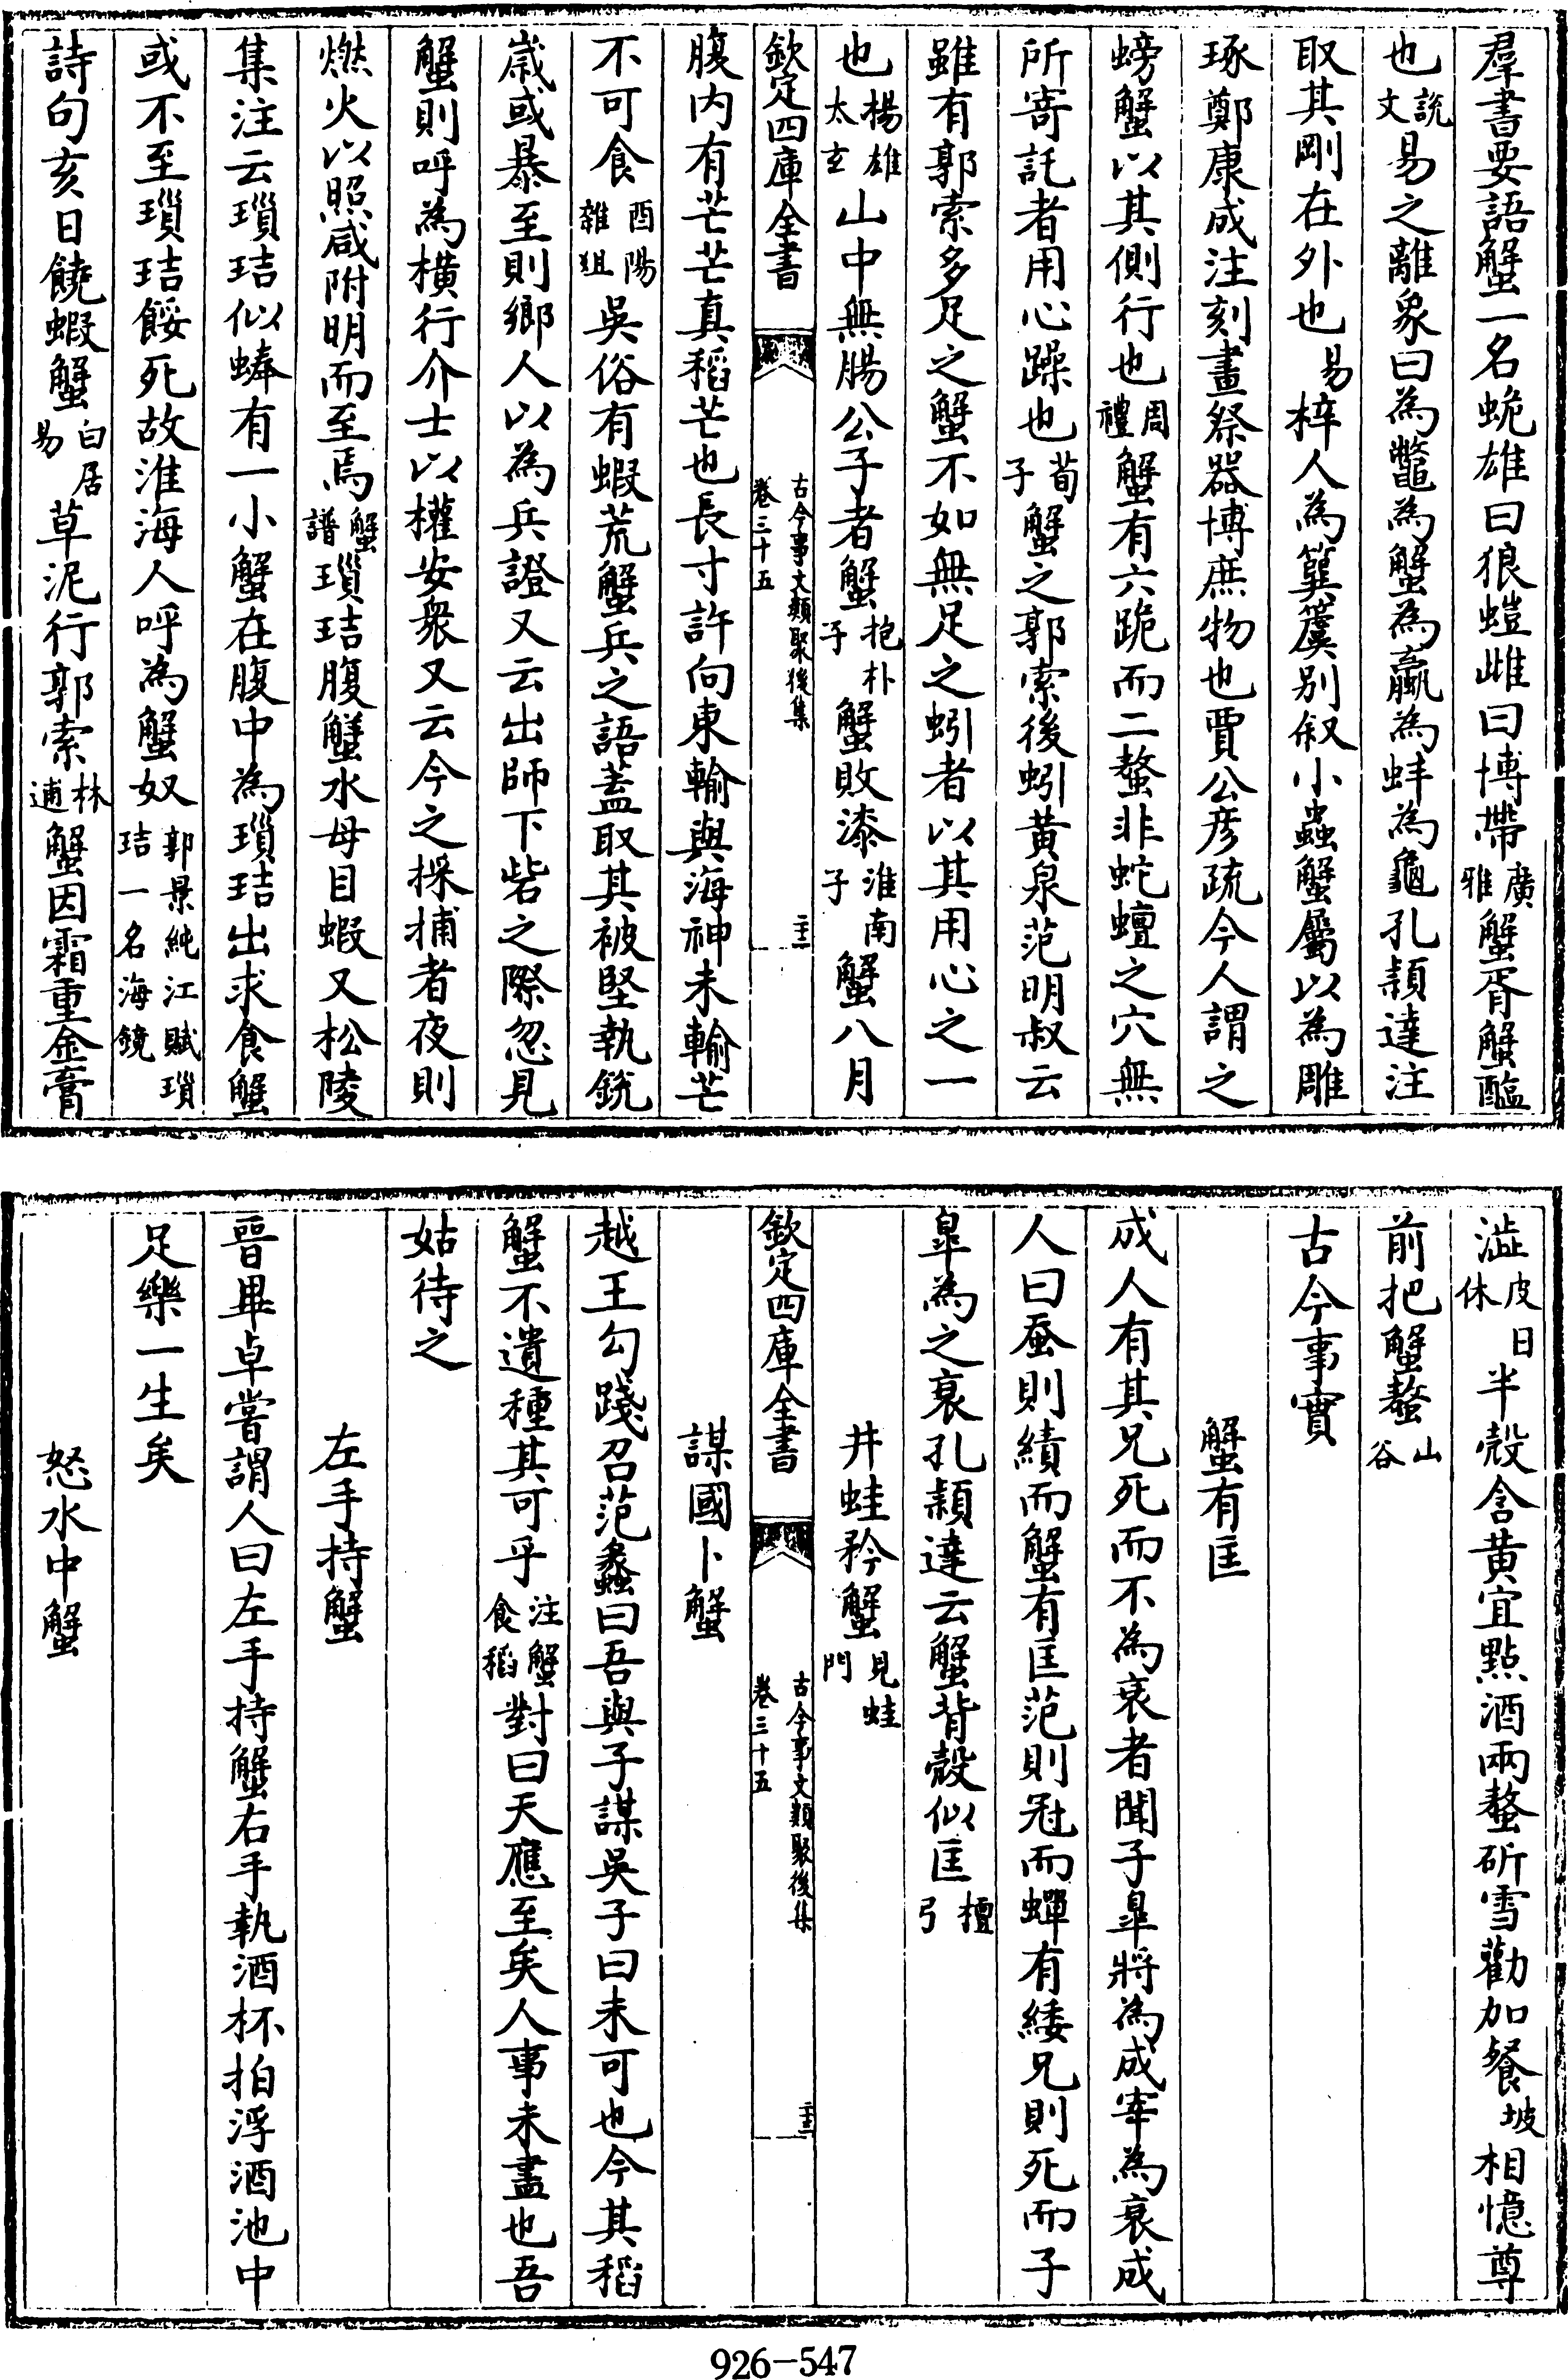 羣書要語蟹一名蛫雄曰狼螘雌曰博帶廣雅蟹胥蟹醢
也說文易之離象曰為鼈為蟹為蠃為蚌為龜孔頴達注
取其剛在外也易梓人為簨簴別叙小蟲蟹屬以為雕
琢鄭康成注刻畫祭器博庶物也賈公彦疏今人謂之
螃蟹以其側行也周禮蟹有六跪而二螯非蛇蟺之穴無
所寄託者用心躁也荀子蟹之郭索後蚓黄泉范明叔云
雖有郭索多足之蟹不如無足之蚓者以其用心之一
也楊雄太玄山中無腸公子者蟹抱朴子蟹敗漆淮南子蟹八月
欽定四庫全書 古今事文類聚後集卷三十五
腹内有芒芒真稻芒也長寸許向東輸與海神未輸芒
不可食酉陽雜俎吳俗有蝦荒蟹兵之語蓋取其被堅執銳
歲或暴至則鄉人以為兵證又云出師下砦之際忽見
蟹則呼為横行介士以權安衆又云今之採捕者夜則
燃火以照咸附明而至焉蟹譜瑣琲腹蟹水母目蝦又松陵
集注云瑣琲似蜯有一小蟹在腹中為瑣琲出求食蟹
或不至瑣琲餒死故淮海人呼為蟹奴郭景純江賦瑣琲一名海鏡
詩句亥日饒蝦蟹白居易草泥行郭索林逋蟹因霜重金膏
澁皮日休半殻含黄宜點酒兩螯斫雪勸加餐坡相憶尊
前把蟹螯山谷
古今事實
蟹有匡
成人有其兄死而不為衰者聞子臯將為成宰為衰成
人曰蚕則績而蟹有匡范則冠而蟬有緌兄則死而子
臯為之衰孔頴達云蟹背殻似匡檀弓
井蛙矜蟹見蛙門
欽定四庫全書 古今事文類聚後集卷三十五
謀國卜蟹
越王勾踐召范蠡曰吾與子謀吳子曰未可也今其稻
蟹不遺種其可乎注蟹食稻對曰天應至矣人事未盡也吾
姑待之
左手持蟹
晉畢卓嘗謂人曰左手持蟹右手執酒杯拍浮酒池中
足樂一生矣
怒水中蟹
926-547